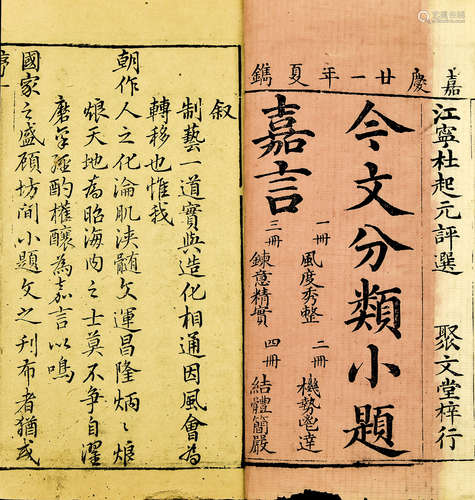 嘉慶廿一年夏鐫
江寧杜起元評選
聚文堂梓行
今文分類小題
嘉言
一冊 風度秀整
二冊 機勢 達
三冊 鍊意精實
四冊 結體簡嚴
敘
制藝一道實與造化相通因風會為
轉移也惟我
朝作人之化淪肌浹髓文運昌隆炳〻烺
烺天地為昭海內之士莫不爭自濯
磨 經酌權釀為嘉言以鳴
國家之盛顧坊間小題文之刊布者猶或
序 一